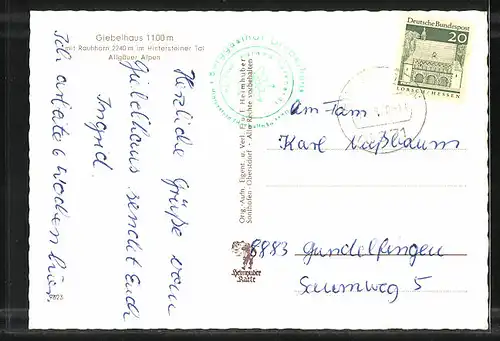 Giebelhaus 1100 m
mit Rauhhorn 2240 m im Hintersteiner Tal
Allgäuer Alpen
Herzliche Grüße vom
Giebelhaus sendet Euch
Ingrid.
Ich arbeite 6 Wochen hier.
Orig.-Aufn. Eigent. u. Verl. F. u. E. Heimhuber
Sonthofen-Oberstdorf · Alle Rechte vorbehalten
Heimhuber
Karte
Berggasthof Giebelhaus
Deutsche Bundespost
20
LORSCH/HESSEN
An Fam
Karl
8883 Gundelfingen
5